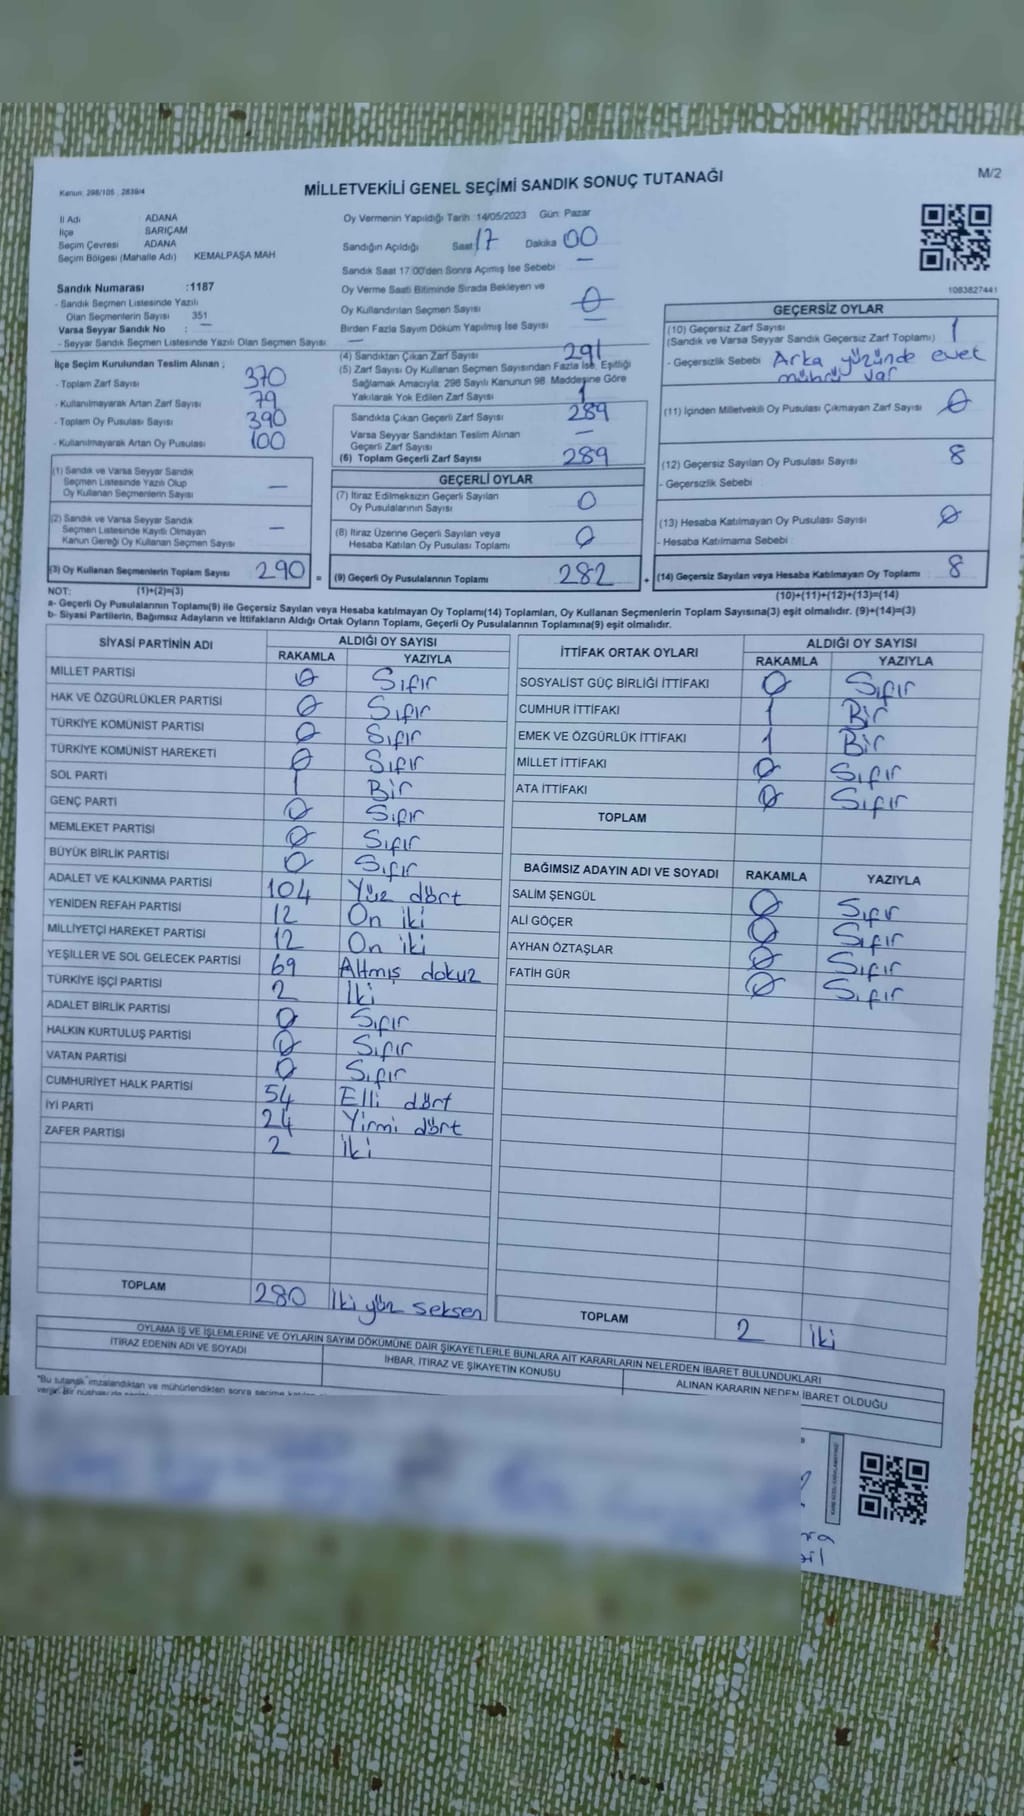 Kanun: 298/105 , 2839/4
MİLLETVEKİLİ GENEL SEÇİMİ SANDIK SONUÇ TUTANAĞI
M/2
İl Adı : ADANA
İlçe : SARIÇAM
Seçim Çevresi : ADANA
Seçim Bölgesi (Mahalle Adı) KEMALPAŞA MAH
Sandık Numarası :1187
- Sandık Seçmen Listesinde Yazılı
Olan Seçmenlerin Sayısı 351
Varsa Seyyar Sandık No : —
- Seyyar Sandık Seçmen Listesinde Yazılı Olan Seçmen Sayısı : —
Oy Vermenin Yapıldığı Tarih :14/05/2023 Gün: Pazar
Sandığın Açıldığı Saat 17 Dakika 00
Sandık Saat 17:00'den Sonra Açımış İse Sebebi —
Oy Verme Saati Bitiminde Sırada Bekleyen ve
Oy Kullandırılan Seçmen Sayısı 0
Birden Fazla Sayım Döküm Yapılmış İse Sayısı —
1083827441
İlçe Seçim Kurulundan Teslim Alınan ;
- Toplam Zarf Sayısı 370
- Kullanılmayarak Artan Zarf Sayısı 79
- Toplam Oy Pusulası Sayısı 390
- Kullanılmayarak Artan Oy Pusulası 100
(1) Sandık ve Varsa Seyyar Sandık
Seçmen Listesinde Yazılı Olup
Oy Kullanan Seçmenlerin Sayısı —
(2) Sandık ve Varsa Seyyar Sandık
Seçmen Listesinde Kayıtlı Olmayan
Kanun Gereği Oy Kullanan Seçmen Sayısı —
(3) Oy Kullanan Seçmenlerin Toplam Sayısı 290 =
(4) Sandıktan Çıkan Zarf Sayısı 291
(5) Zarf Sayısı Oy Kullanan Seçmen Sayısından Fazla İse, Eşitliği
Sağlamak Amacıyla, 298 Sayılı Kanunun 98. Maddesine Göre
Yakılarak Yok Edilen Zarf Sayısı 1
Sandıkta Çıkan Geçerli Zarf Sayısı 289
Varsa Seyyar Sandıktan Teslim Alınan
Geçerli Zarf Sayısı —
(6) Toplam Geçerli Zarf Sayısı 289
GEÇERLİ OYLAR
(7) İtiraz Edilmeksizin Geçerli Sayılan
Oy Pusulalarının Sayısı 0
(8) İtiraz Üzerine Geçerli Sayılan veya
Hesaba Katılan Oy Pusulası Toplamı 0
(9) Geçerli Oy Pusulalarının Toplamı 282 +
GEÇERSİZ OYLAR
(10) Geçersiz Zarf Sayısı 1
(Sandık ve Varsa Seyyar Sandık Geçersiz Zarf Toplamı)
- Geçersizlik Sebebi Arka yüzünde evet
mührü var
(11) İçinden Milletvekili Oy Pusulası Çıkmayan Zarf Sayısı 0
(12) Geçersiz Sayılan Oy Pusulası Sayısı 8
- Geçersizlik Sebebi
(13) Hesaba Katılmayan Oy Pusulası Sayısı 0
- Hesaba Katılmama Sebebi
(14) Geçersiz Sayılan veya Hesaba Katılmayan Oy Toplamı 8
NOT: (1)+(2)=(3)
(10)+(11)+(12)+(13)=(14)
a- Geçerli Oy Pusulalarının Toplamı(9) ile Geçersiz Sayılan veya Hesaba katılmayan Oy Toplamı(14) Toplamları, Oy Kullanan Seçmenlerin Toplam Sayısına(3) eşit olmalıdır. (9)+(14)=(3)
b- Siyasi Partilerin, Bağımsız Adayların ve İttifakların Aldığı Ortak Oyların Toplamı, Geçerli Oy Pusulalarının Toplamına(9) eşit olmalıdır.
SİYASİ PARTİNİN ADI ALDIĞI OY SAYISI
RAKAMLA YAZIYLA
MİLLET PARTİSİ 0 Sıfır
HAK VE ÖZGÜRLÜKLER PARTİSİ 0 Sıfır
TÜRKİYE KOMÜNİST PARTİSİ 0 Sıfır
TÜRKİYE KOMÜNİST HAREKETİ 0 Sıfır
SOL PARTİ 1 Bir
GENÇ PARTİ 0 Sıfır
MEMLEKET PARTİSİ 0 Sıfır
BÜYÜK BİRLİK PARTİSİ 0 Sıfır
ADALET VE KALKINMA PARTİSİ 104 Yüz dört
YENİDEN REFAH PARTİSİ 12 On iki
MİLLİYETÇİ HAREKET PARTİSİ 12 On iki
YEŞİLLER VE SOL GELECEK PARTİSİ 69 Altmış dokuz
TÜRKİYE İŞÇİ PARTİSİ 2 İki
ADALET BİRLİK PARTİSİ 0 Sıfır
HALKIN KURTULUŞ PARTİSİ 0 Sıfır
VATAN PARTİSİ 0 Sıfır
CUMHURİYET HALK PARTİSİ 54 Elli dört
İYİ PARTİ 24 Yirmi dört
ZAFER PARTİSİ 2 İki
TOPLAM 280 İki yüz seksen
İTTİFAK ORTAK OYLARI ALDIĞI OY SAYISI
RAKAMLA YAZIYLA
SOSYALİST GÜÇ BİRLİĞİ İTTİFAKI 0 Sıfır
CUMHUR İTTİFAKI 1 Bir
EMEK VE ÖZGÜRLÜK İTTİFAKI 1 Bir
MİLLET İTTİFAKI 0 Sıfır
ATA İTTİFAKI 0 Sıfır
TOPLAM
BAĞIMSIZ ADAYIN ADI VE SOYADI RAKAMLA YAZIYLA
SALİM ŞENGÜL 0 Sıfır
ALİ GÖÇER 0 Sıfır
AYHAN ÖZTAŞLAR 0 Sıfır
FATİH GÜR 0 Sıfır
TOPLAM 2 İki
OYLAMA İŞ VE İŞLEMLERİNE VE OYLARIN SAYIM DÖKÜMÜNE DAİR ŞİKAYETLERLE BUNLARA AİT KARARLARIN NELERDEN İBARET BULUNDUKLARI
İTİRAZ EDENİN ADI VE SOYADI
İHBAR, İTİRAZ VE ŞİKAYETİN KONUSU
ALINAN KARARIN NEDEN İBARET OLDUĞU
"Bu tutanak imzalandıktan ve mühürlendikten sonra